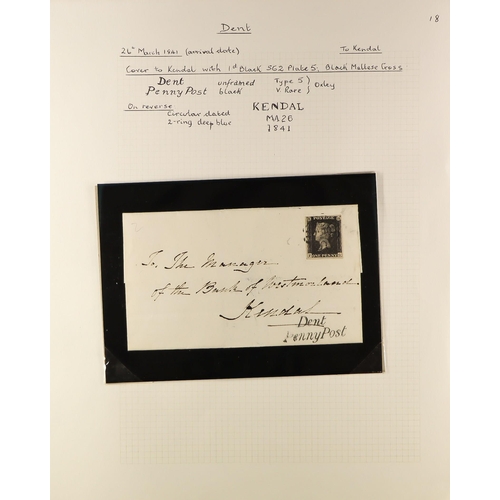 18
Dent
26th March 1841 (arrival date) To Kendal
Cover to Kendal with 1d Black SG2 Plate 5: Black Maltese Cross
Dent unframed Type 5 } Oxley
Penny Post black V. Rare
On reverse KENDAL
Circular dated MA26
2-ring deep blue 1841
POSTAGE
ONE PENNY
To The Manager
of the Bank of Westmorland
Kendal
Dent
Penny Post